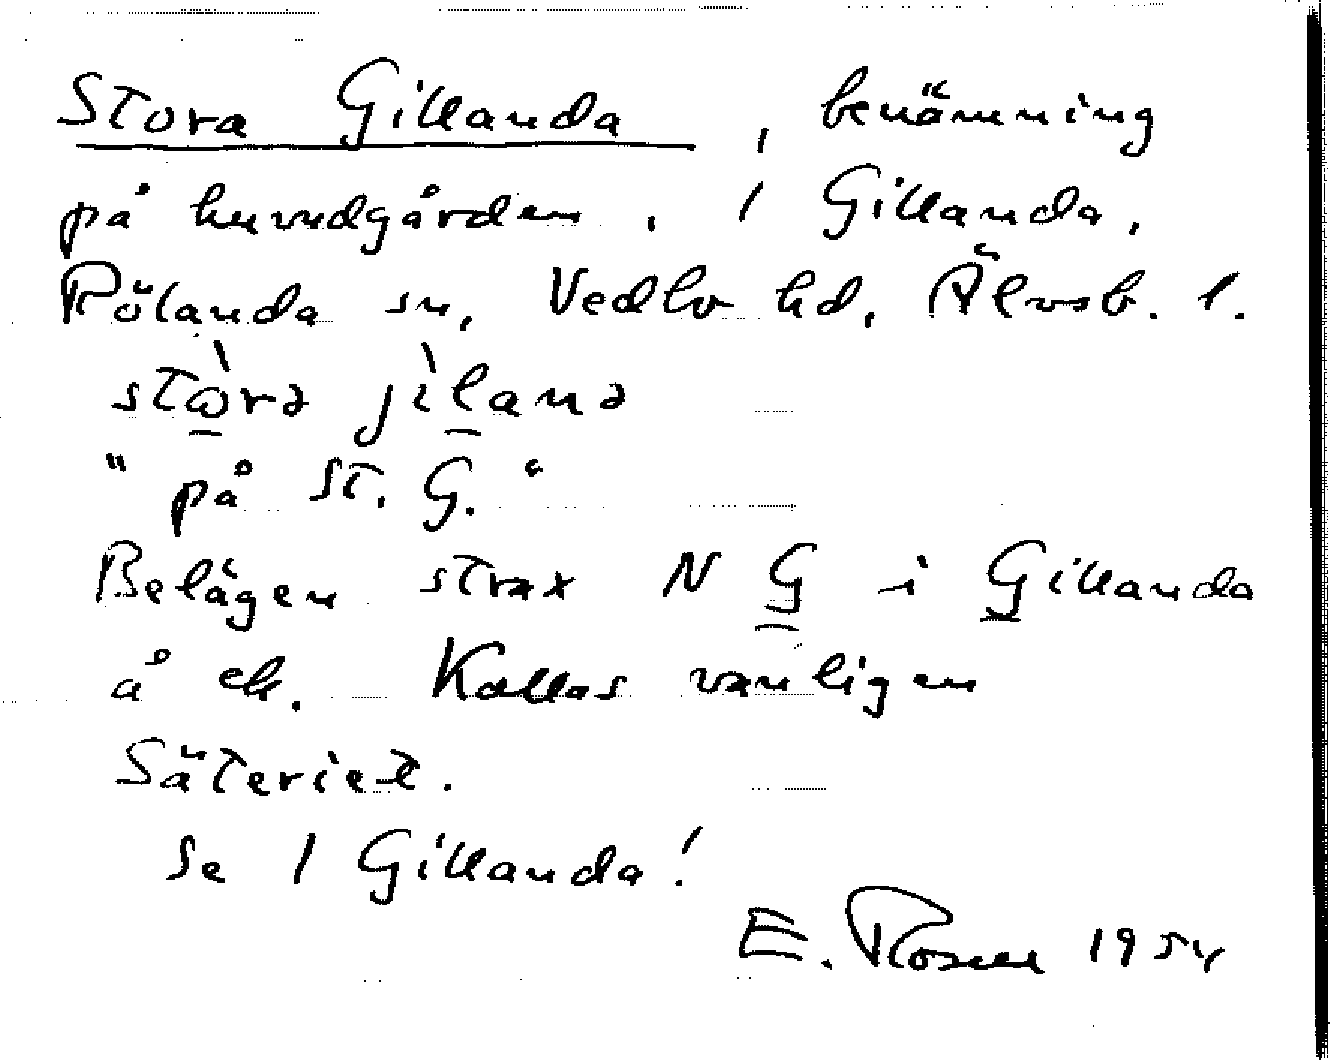 Stora Gillanda, benämning
på huvudgården, 1 Gillanda,
Rölanda sn, Vedbo hd, Älvsb. l.
"på St. G."
Belägen strax N G i Gillanda
å ek. Kallas vanligen
Säteriet.
Se 1 Gillanda!
E. Rosell 1954